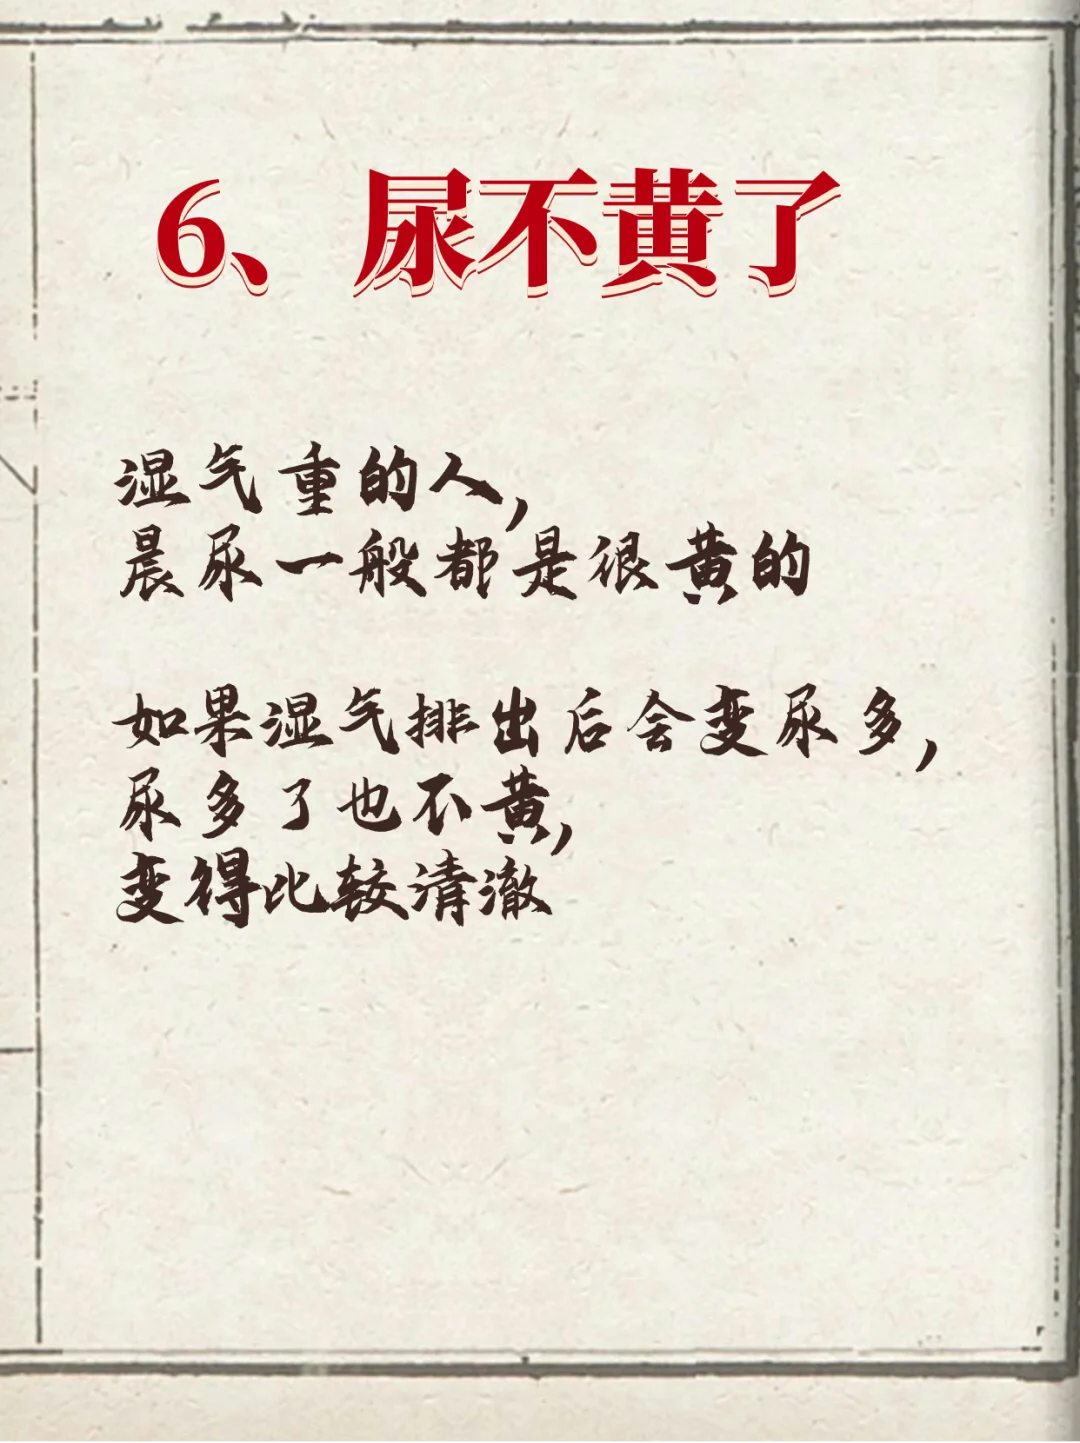 6、尿不黄了
湿气重的人，
晨尿一般都是很黄的
如果湿气排出后会变尿多，
尿多了也不黄，
变得比较清澈